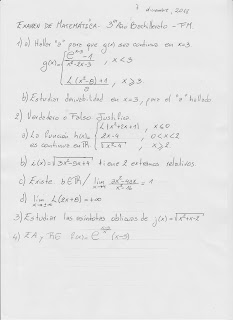 diciembre, 2012
EXAMEN DE MATEMÁTICA - 3º Año Bachillerato - F.M.
1) a) Hallar "a" para que g(x) sea continua en x=3.
g(x)= { -1 / x²-2x-3 , x<3
L(x²-8)+1 / a , x⩾3
b) Estudiar derivabilidad en x=3, para el "a" hallado.
2) Verdadero o Falso. Justifica.
a) La función h(x)= { L(x²+2x+1) , x⩽0
es continua en R 2x-4 , 0<x<2
√x²-4 , x⩾2
b) h(x)= √3x²-9x+9 tiene 2 extremos relativos.
c) Existe b∈R / lim = 1
d) lim L(2x+8)=+∞
3) Estudiar las asíntotas oblicuas de j(x)=√x²+x-2
4) E.A. y R.G f(x)= e (x-3)